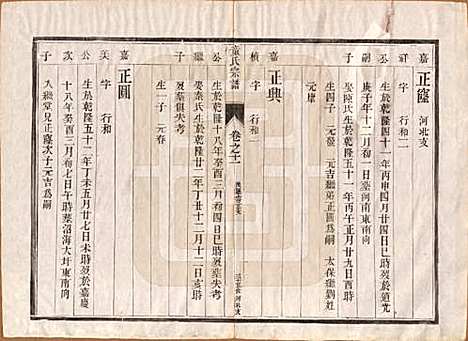 嘉 正窿 河北支
祥 字 行和二
公 生於乾隆四十一年丙申四月廿四日巳時歿於道光
嗣 庚子年十二月初一日墓河南東南向
子 娶陸氏生於乾隆五十一年丙午正月廿九日酉時
生四子 元 元吉繼嗣正圓爲嗣 太保繼劉姓
元康
嘉 正興
楨 字 行和二
公 生於乾隆十八年癸酉三月初八日時歿失考
繼 娶秦氏生於乾隆廿二年丁丑十二月十二日亥時
子 歿葬俱失考
生一子 元春
童氏宗譜
卷之十一
嘉 正圓
美 字 行和
公 生於乾隆五十二年丁未五月廿七日未時歿於嘉慶
次 十八年癸酉二月初七日午時葬沼海大圩東南向
子 入繼堂兄正窿次子元吉爲嗣